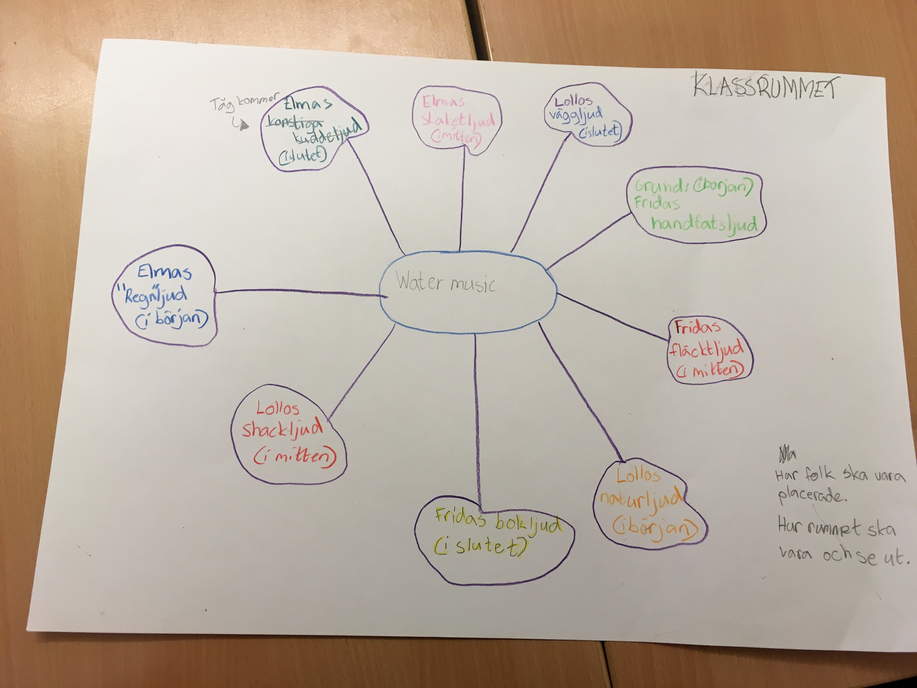 KLASSRUMMET
Tåg kommer
Elmas
konstiga
kuddeljud
(islutet)
Elmas
staketljud
(imitten)
Lollos
väggljud
(islutet)
Grund: (början)
Fridas
handfatsljud
Elmas
"Regn"ljud
(i början)
Water music
Fridas
fläcktljud
(i mitten)
Lollos
(i mitten)
Lollos
naturljud
(i början)
Fridas bokljud
(i slutet)
Hur folk ska vara
placerade.
Hur rummet ska
vara och se ut.